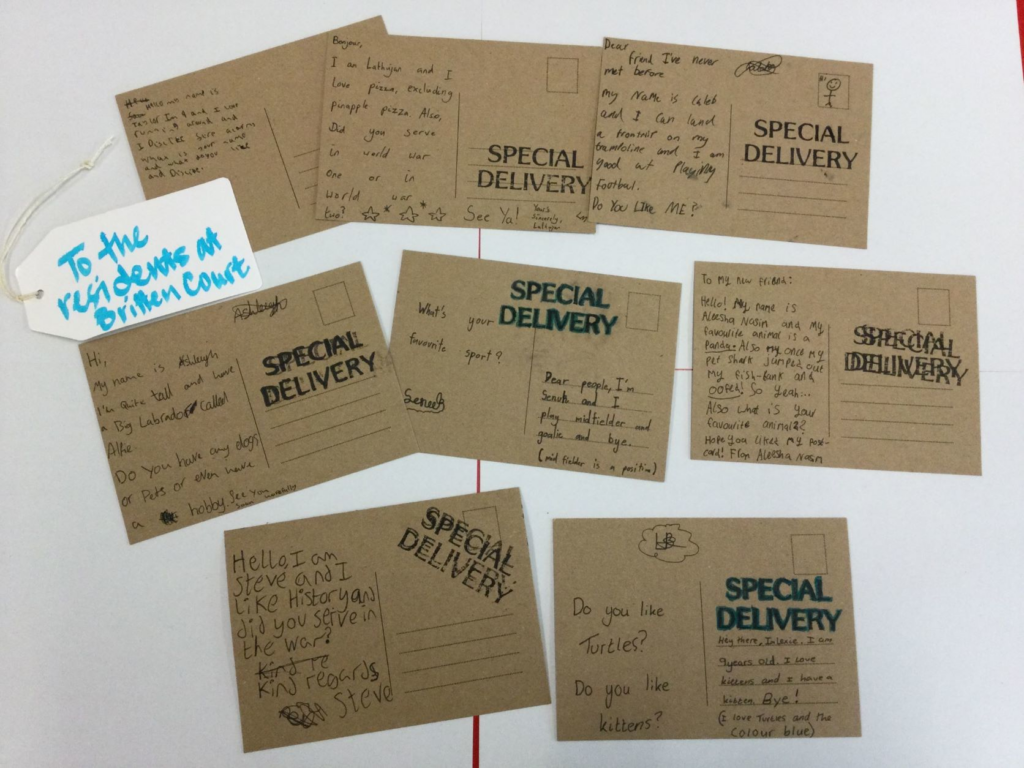 my name is
and
Bonjour,
I am Lathujan and I
love pizza, excluding
pinapple pizza. Also,
Did you serve
in world war
one or in
world war
two? ☆*☆*☆ See Ya! Yours
Sincerely,
Lathujan
SPECIAL
DELIVERY
Dear
friend I've never
met before
my Name is Caleb
and I can land
a frontflip on my
trampoline and I am
good at Playing
football.
Do You LIKE ME?
SPECIAL
DELIVERY
To the
residents at
Britten Court
Ashleigh
Hi,
My name is Ashleigh
I'm Quite tall and have
a Big Labrador Called
Alfie
Do You have any dogs
or Pets or even have
a hobby. See You
Soon
SPECIAL
DELIVERY
What's your
favourite sport?
SPECIAL
DELIVERY
Dear people, I'm
Senuk and I
play midfielder and
goalie and bye.
(mid fielder is a position)
To my new friend:
Hello! My name is
Aleesha Nasin and My
favourite animal is a
Panda. Also my once my
pet shark jumped out
my fish-tank and
oofed! So yeah...
Also what is your
favourite animal?
Hope you liked my post-
card! From Aleesha Nasin
SPECIAL
DELIVERY
Hello, I am
Steve and I
like History and
did you serve in
the war?
Kind re
Kind regards
Steve
SPECIAL
DELIVERY
Do you like
Turtles?
Do you like
kittens?
SPECIAL
DELIVERY
Hey there, I'm Lexie. I am
9 years old. I love
kittens and I have a
kitten. Bye!
(I love Turtles and the
Colour blue)